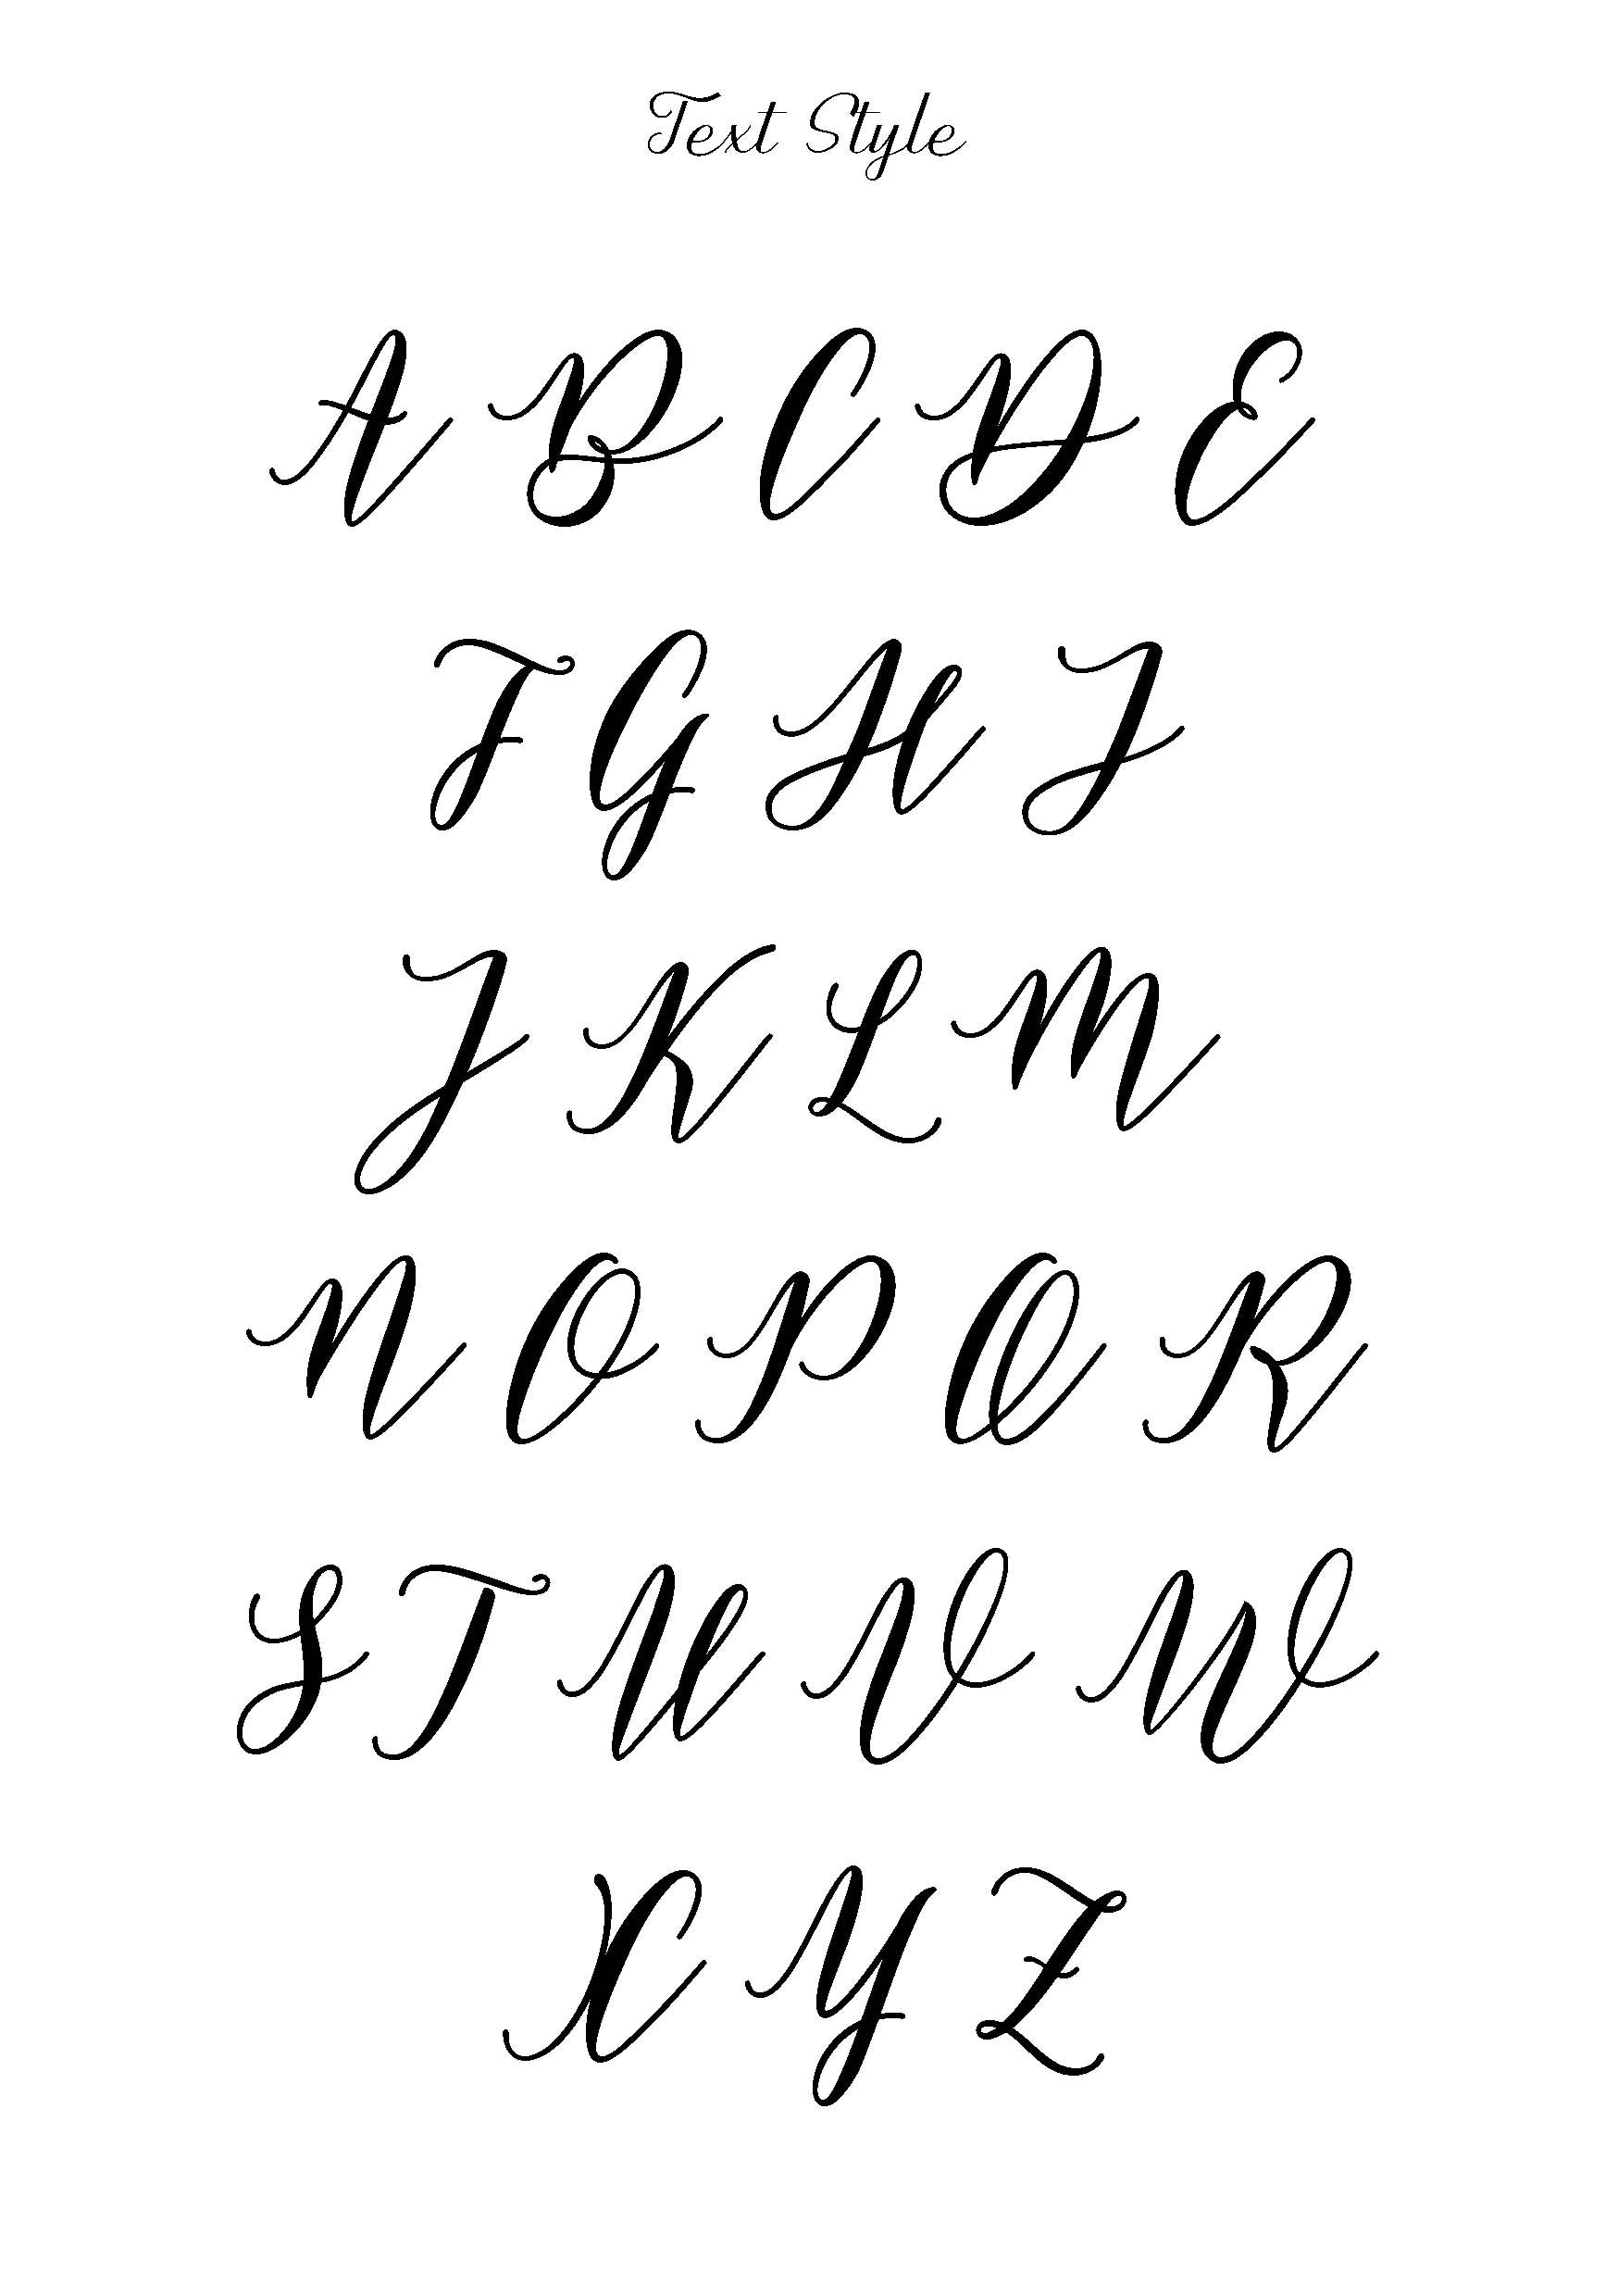 Text Style
A B C D E
F G H I
J K L M
N O P Q R
S T U V W
X Y Z